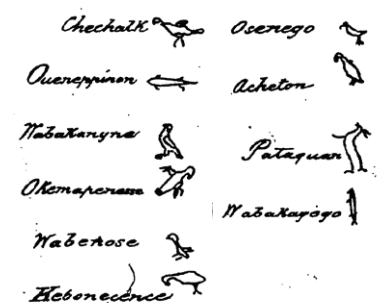 Chechalk
Queneppinon
Wabakanyne
Okemapenesse
Wabenose
Kebonecence
Osenego
Acheton
Pataquan
Wabakagogo